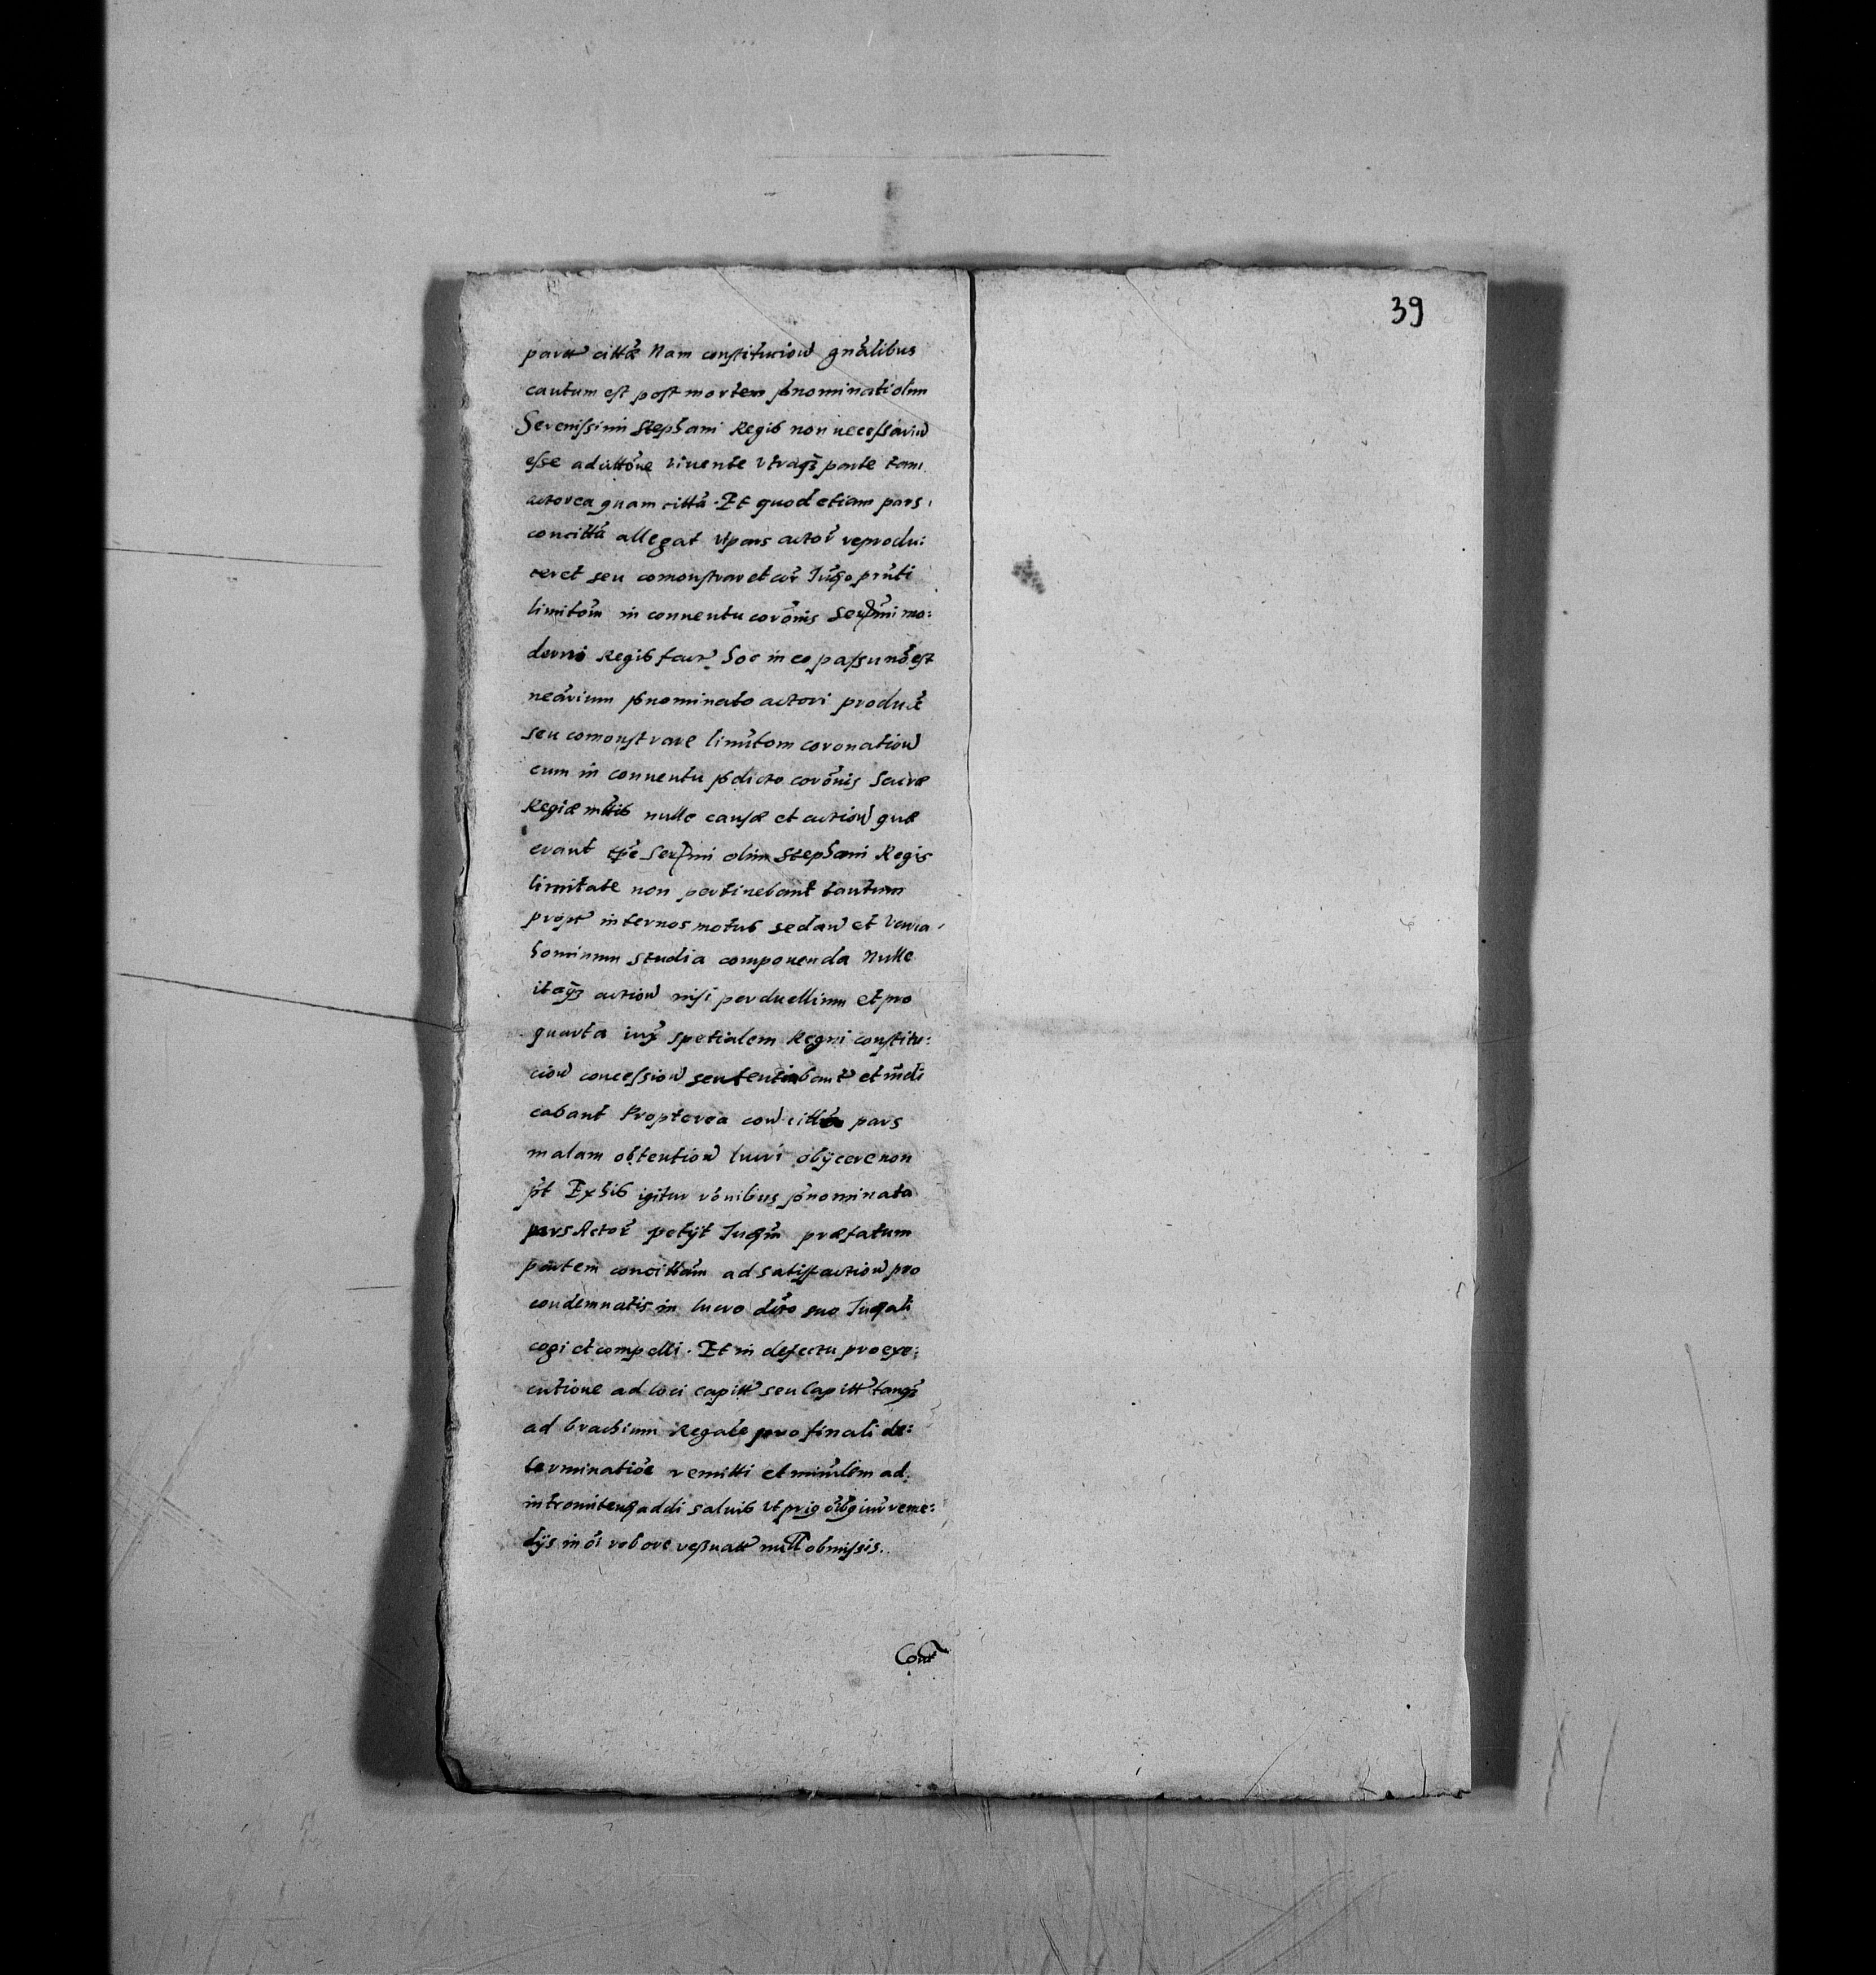 39
cittã Nam constituciow gnãlibus
cautum est post mortem pñominati olim
Serenissimi Stephani Regis non necessariũ
esse ad cittõne viuente vtraqȝ parte tam
actorea quam cittã. Et quod etiam pars
concittã allegat vt pars actor̃ reprodu:
ceret seu comonstraret
limitõm in conuentu corõnis Serẽmi mo:
derni Regis hoc in eo passu nõ est
neãrium pñominato actori
seu comonstrare limitom coronatiow
cum in conuentu pdicto corõnis Sacræ
Regiæ mttis nulle causæ et actiow quæ
erant tpẽ Serẽmi olim Stephani Regis
limitate non pertinebant tantum
propt internos motus sedaw et varia
hominum studia componenda Nulle
itaqȝ actiow nisi perduellium et pro
quarta iux̃ spetialem Regni constitu:
ciow concessiow sententiabant et iudi
cabant Propterea cow cittã pars
malam obtentiow lucri obijcere non
pt̃ Ex his igitur rõnibus pñominata
pars Actor̃ petijt præfatum
partem concittãm ad satisfactiow pro
condemnatis in lucro suo
cogi et compelli. Et in defectu pro exe:
cutione ad loci capitt seu Capitt tanqȝ
ad brachium Regale pro finali de:
terminatiõe remitti et ad
addi saluis
dijs in robore obmissis.